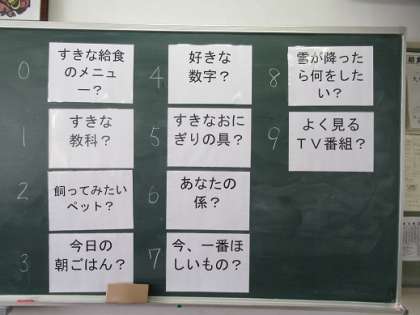 0
すきな給食
のメニュ
ー？
1
すきな
教科？
2
飼ってみたい
ペット？
3
今日の
朝ごはん？
4
好きな
数字？
5
すきなおに
ぎりの具？
6
あなたの
係？
7
今、一番ほ
しいもの？
8
雪が降った
ら何をした
い？
9
よく見る
ＴＶ番組？